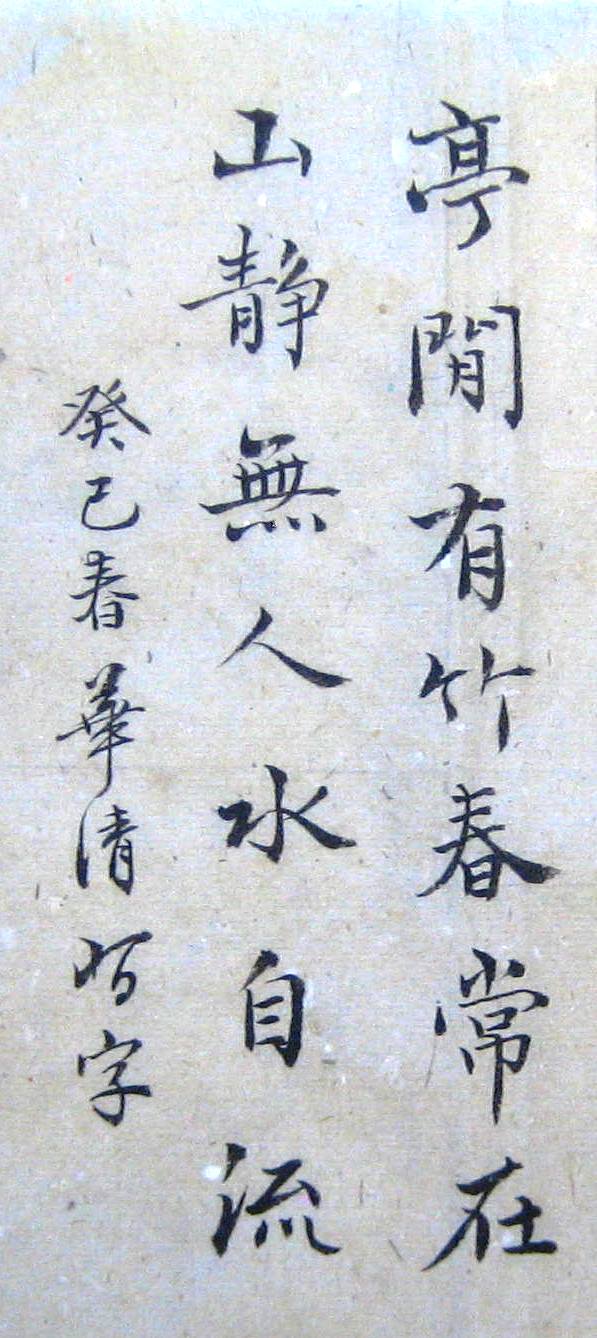 亭閒有竹春常在
山静無人水自流
癸巳春華清字